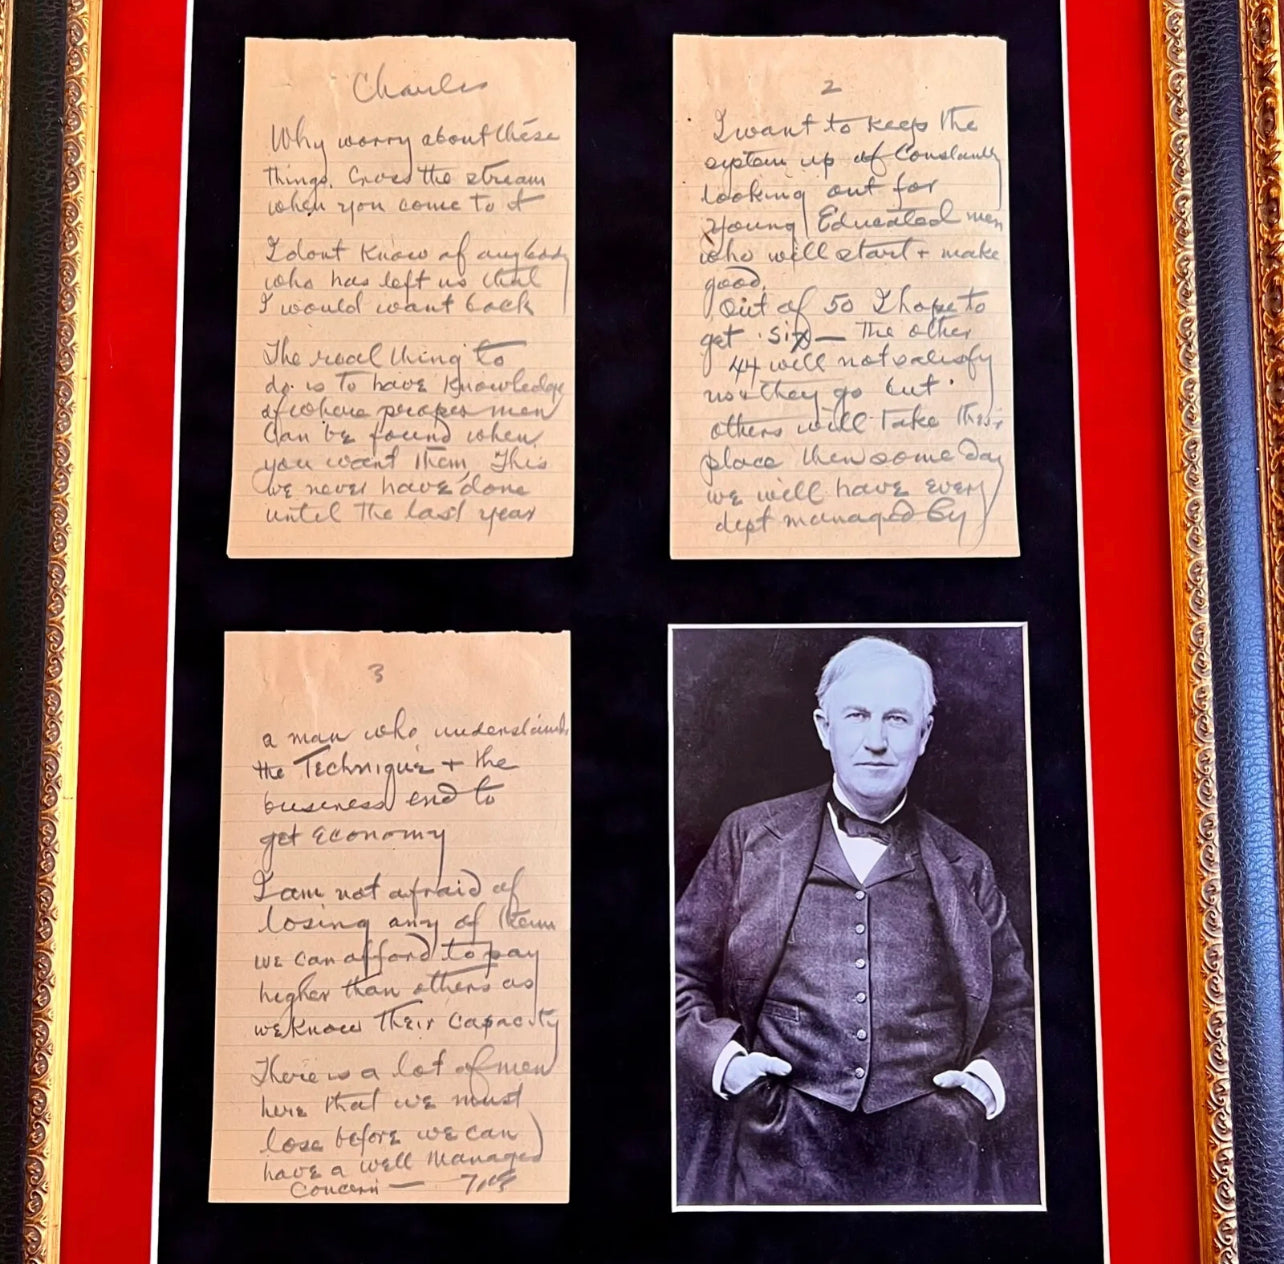 Charles
Why worry about these
things. Cross the stream
when you come to it
I dont Know of anybody
who has left us that
I would want back
The real thing to
do is to have Knowledge
of where proper men
Can be found when
you want them, This
we never have done
until the last year
2
I want to keep the
system up of Constantly
looking out for
young Educated men
who will start + make
good.
Out of 50 I hope to
get six — The other
44 will not satisfy
us & they go but
others will Take their
place then some day
we will have every
dept managed by
3
a man who understands
the Technique + the
business end to
get economy
I am not afraid of
losing any of them
we can afford to pay
higher than others as
we know Their Capacity
There is a lot of men
here that we must
lose before we can
have a well Managed
Concern —